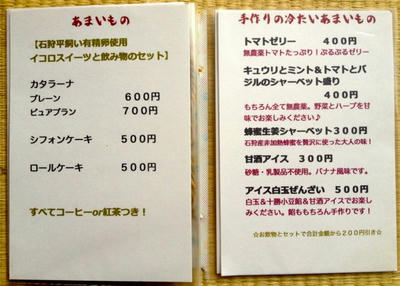 あまいもの
【石狩平飼い有精卵使用
イコロスイーツと飲み物のセット】
カタラーナ
プレーン 600円
ピュアブラン 700円
シフォンケーキ 500円
ロールケーキ 500円
すべてコーヒーor紅茶つき！
手作りの冷たいあまいもの
トマトゼリー 400円
無農薬トマトたっぷり！ぷるぷるゼリー
キュウリとミント＆トマトとバ
ジルのシャーベット盛り
400円
もちろん全て無農薬。野菜とハーブを甘
味でお楽しみください♪
蜂蜜生姜シャーベット300円
石狩産非加熱蜂蜜を贅沢に使った大人の味！
甘酒アイス 300円
砂糖・乳製品不使用。バナナ風味です。
アイス白玉ぜんざい 500円
白玉＆十勝小豆餡＆甘酒アイスでお楽し
みください。餡ももちろん手作りです！
☆お飲物とセットで合計金額から200円引き☆